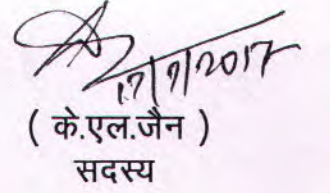 17/7/2017
( के.एल.जैन )
सदस्य